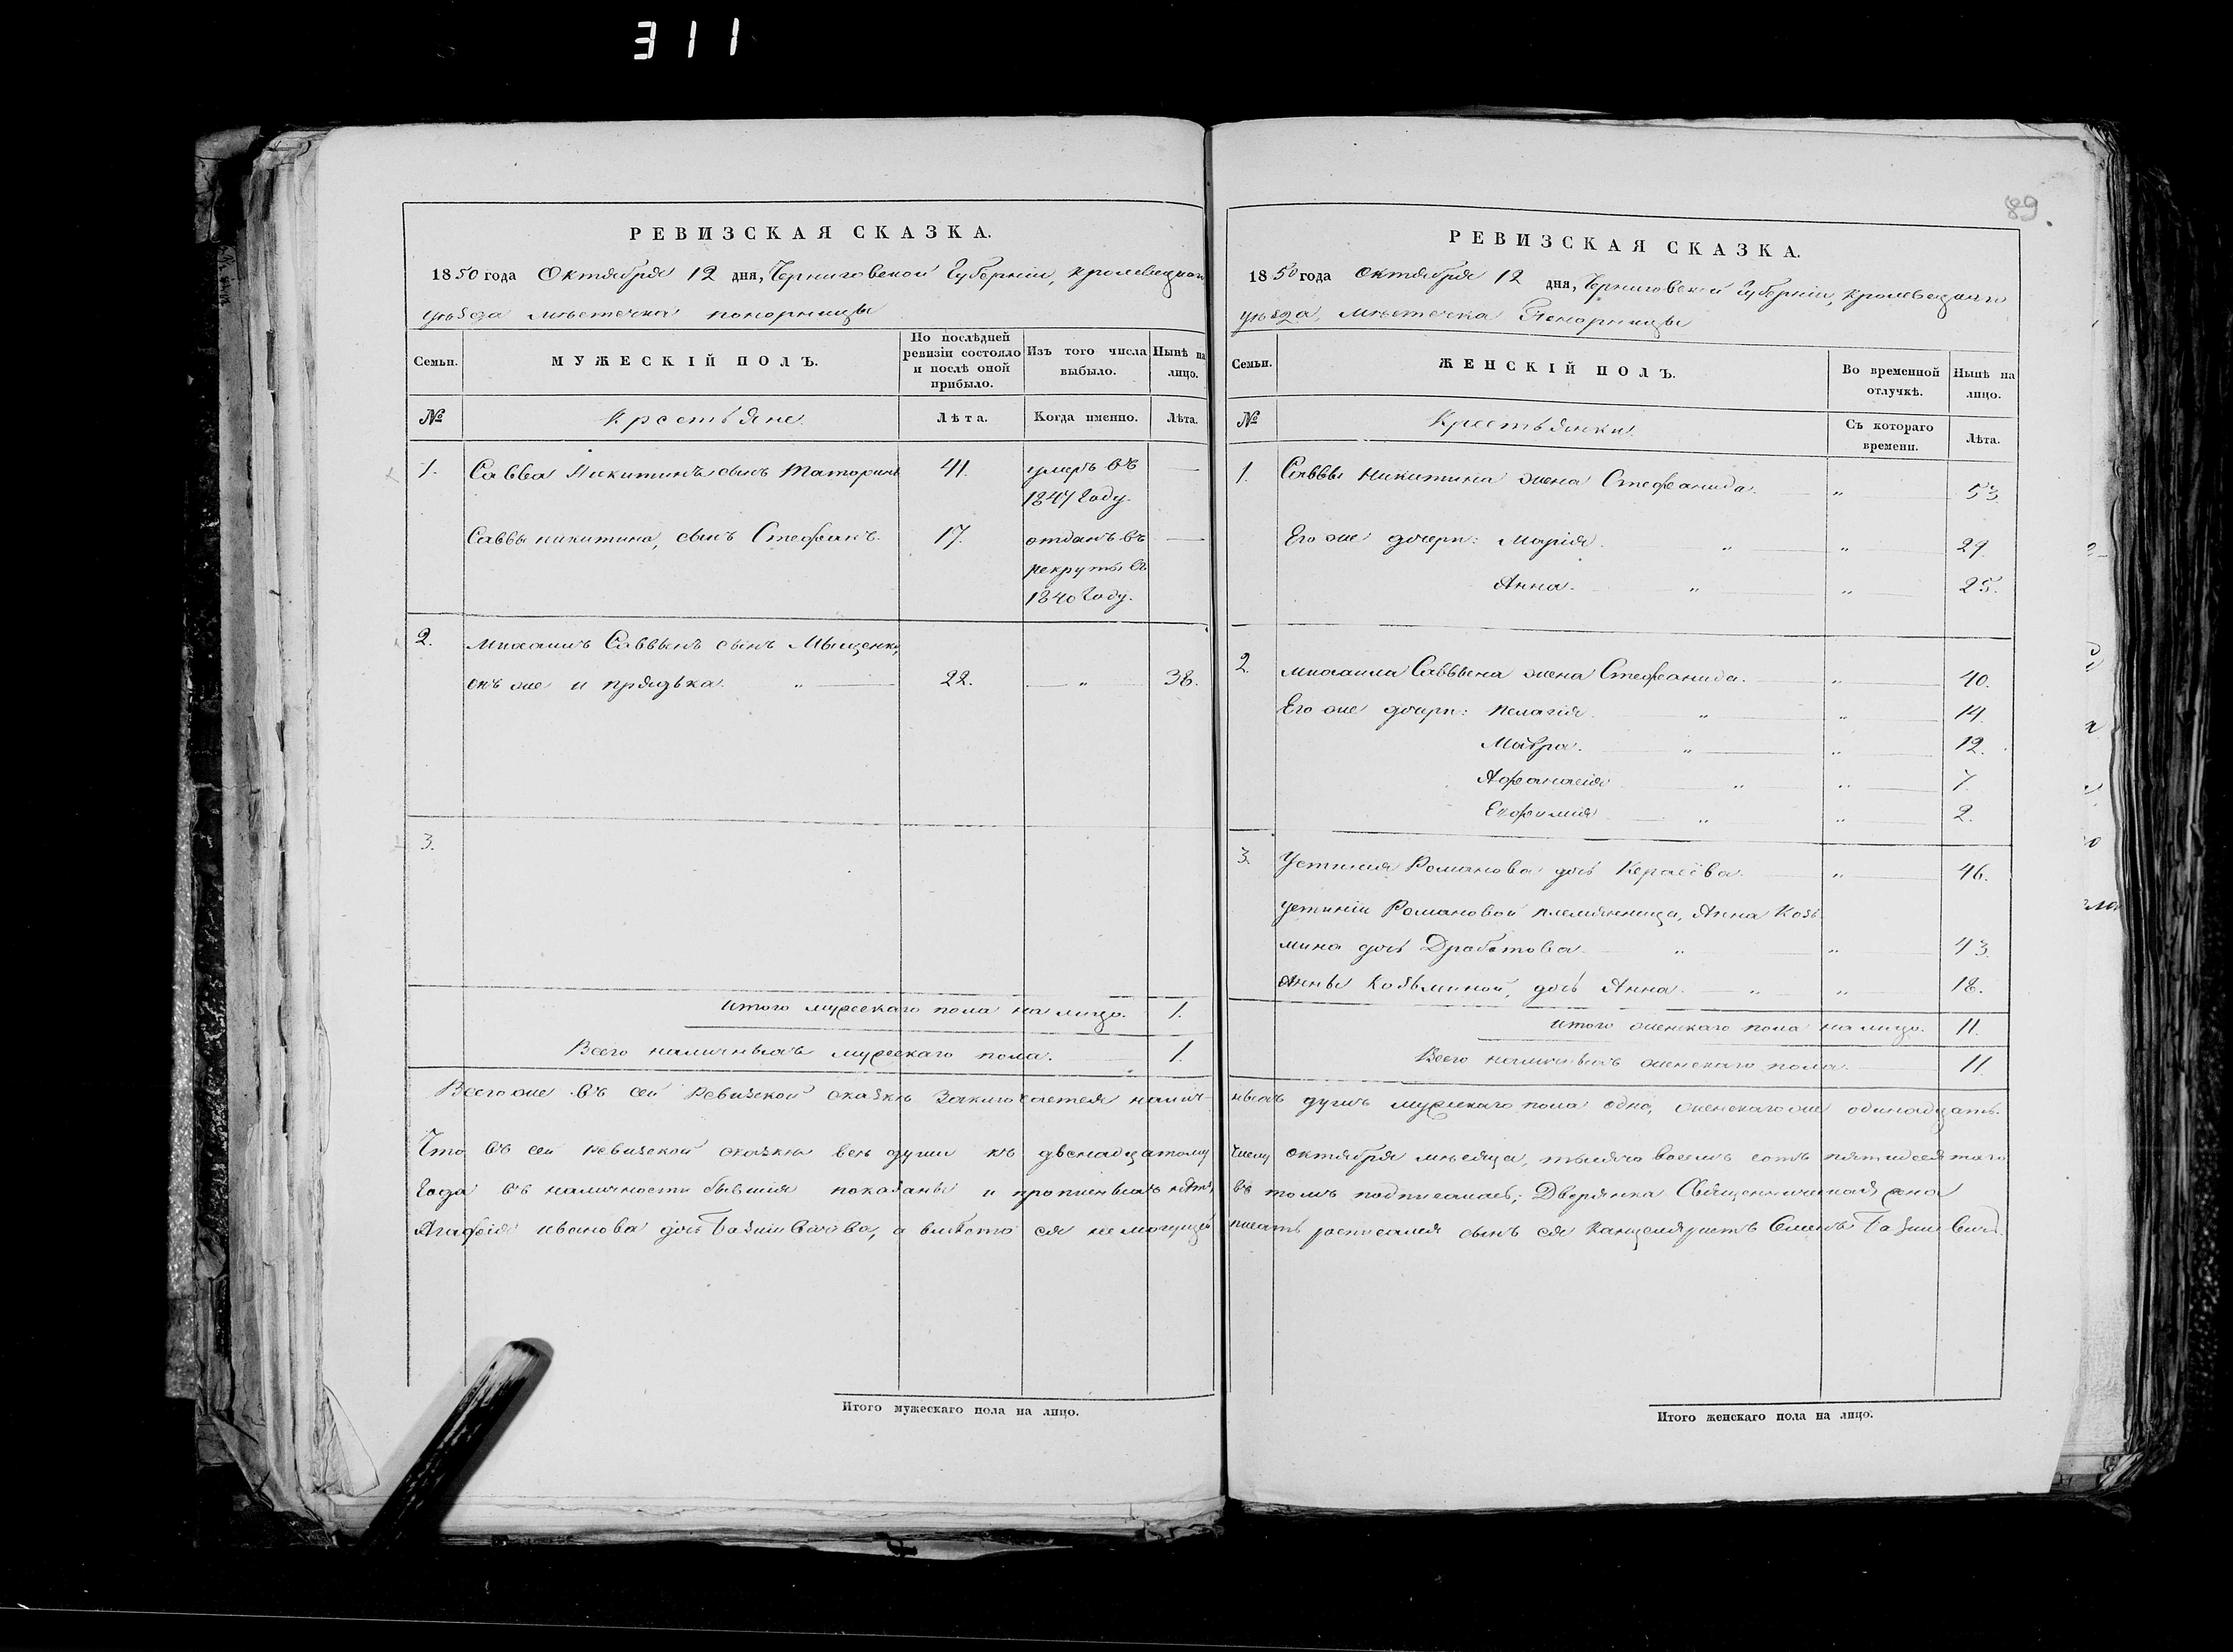 311
РЕВИЗСКАЯ СКАЗКА.
1850 года Октября 12 дня, Черниговской Губерніи, Кролевецкаго
уѣзда мѣстечка Понорницы
Семьи.
МУЖЕСКІЙ ПОЛЪ.
По послѣдней ревизіи состояло и послѣ оной прибыло.
Изъ того числа выбыло.
Нынѣ на лицо.
№
Крестьяне.
Лѣта.
Когда именно.
Лѣта.
1. Савва Никитинъ сынъ Таторинъ 41. умеръ въ
1847 Году.
Саввы Никитина, сынъ Стефанъ. 17. отданъ въ
рекруты въ
1840 Году.
2. Михаилъ Саввинъ сынъ Мыщенко,
онъ же и Прядька. " 22. " 38.
3.
Итого мужескаго пола на лицо. 1.
Всего наличныхъ мужескаго пола. 1.
89.
РЕВИЗСКАЯ СКАЗКА.
1850 года Октября 12 дня, Черниговской Губерніи, Кролевецкаго
уѣзда, мѣстечка Понорницы
Семьи.
ЖЕНСКІЙ ПОЛЪ.
Во временной отлучкѣ.
Нынѣ на лицо.
№
Крестьянки.
Съ котораго времени.
Лѣта.
1. Саввы Никитина жена Стефанида. " 53.
Его же дочери: Марія. " " 29.
Анна. " " 25.
2. Михаила Саввина жена Стефанида. " 40.
Его же дочери: Пелагія " " 14.
Мавра. " " 12.
Афанасія " " 7.
Евфимія " " 2.
3. Устинія Романова дочь " 46.
Устиніи Романовой племянница, Анна Козь
мина дочь Драбатова. " " 43.
Анны Козьминой, дочь Анна. " " 18.
Итого женскаго пола на лицо. 11.
Всего наличныхъ женскаго пола. 11
Всего же въ сей Ревизской сказкѣ заключается налич-ныхъ душъ мужескаго пола одна, женскаго же одинадцать.
Что въ сей Ревизской сказкѣ всѣ души къ двенадцатому числу Октября мѣсяца, тысяча восемь сотъ пятидесятаго
Года въ наличности бывшія показаны и прописныхъ нѣтъ, въ томъ подписалась; Дворянка Священническая жена
Агафія Иванова дочь а вмѣсто ея немогущей писать росписался сынъ ея Канцеляристъ Семенъ
Итого мужескаго пола на лицо.
Итого женскаго пола на лицо.